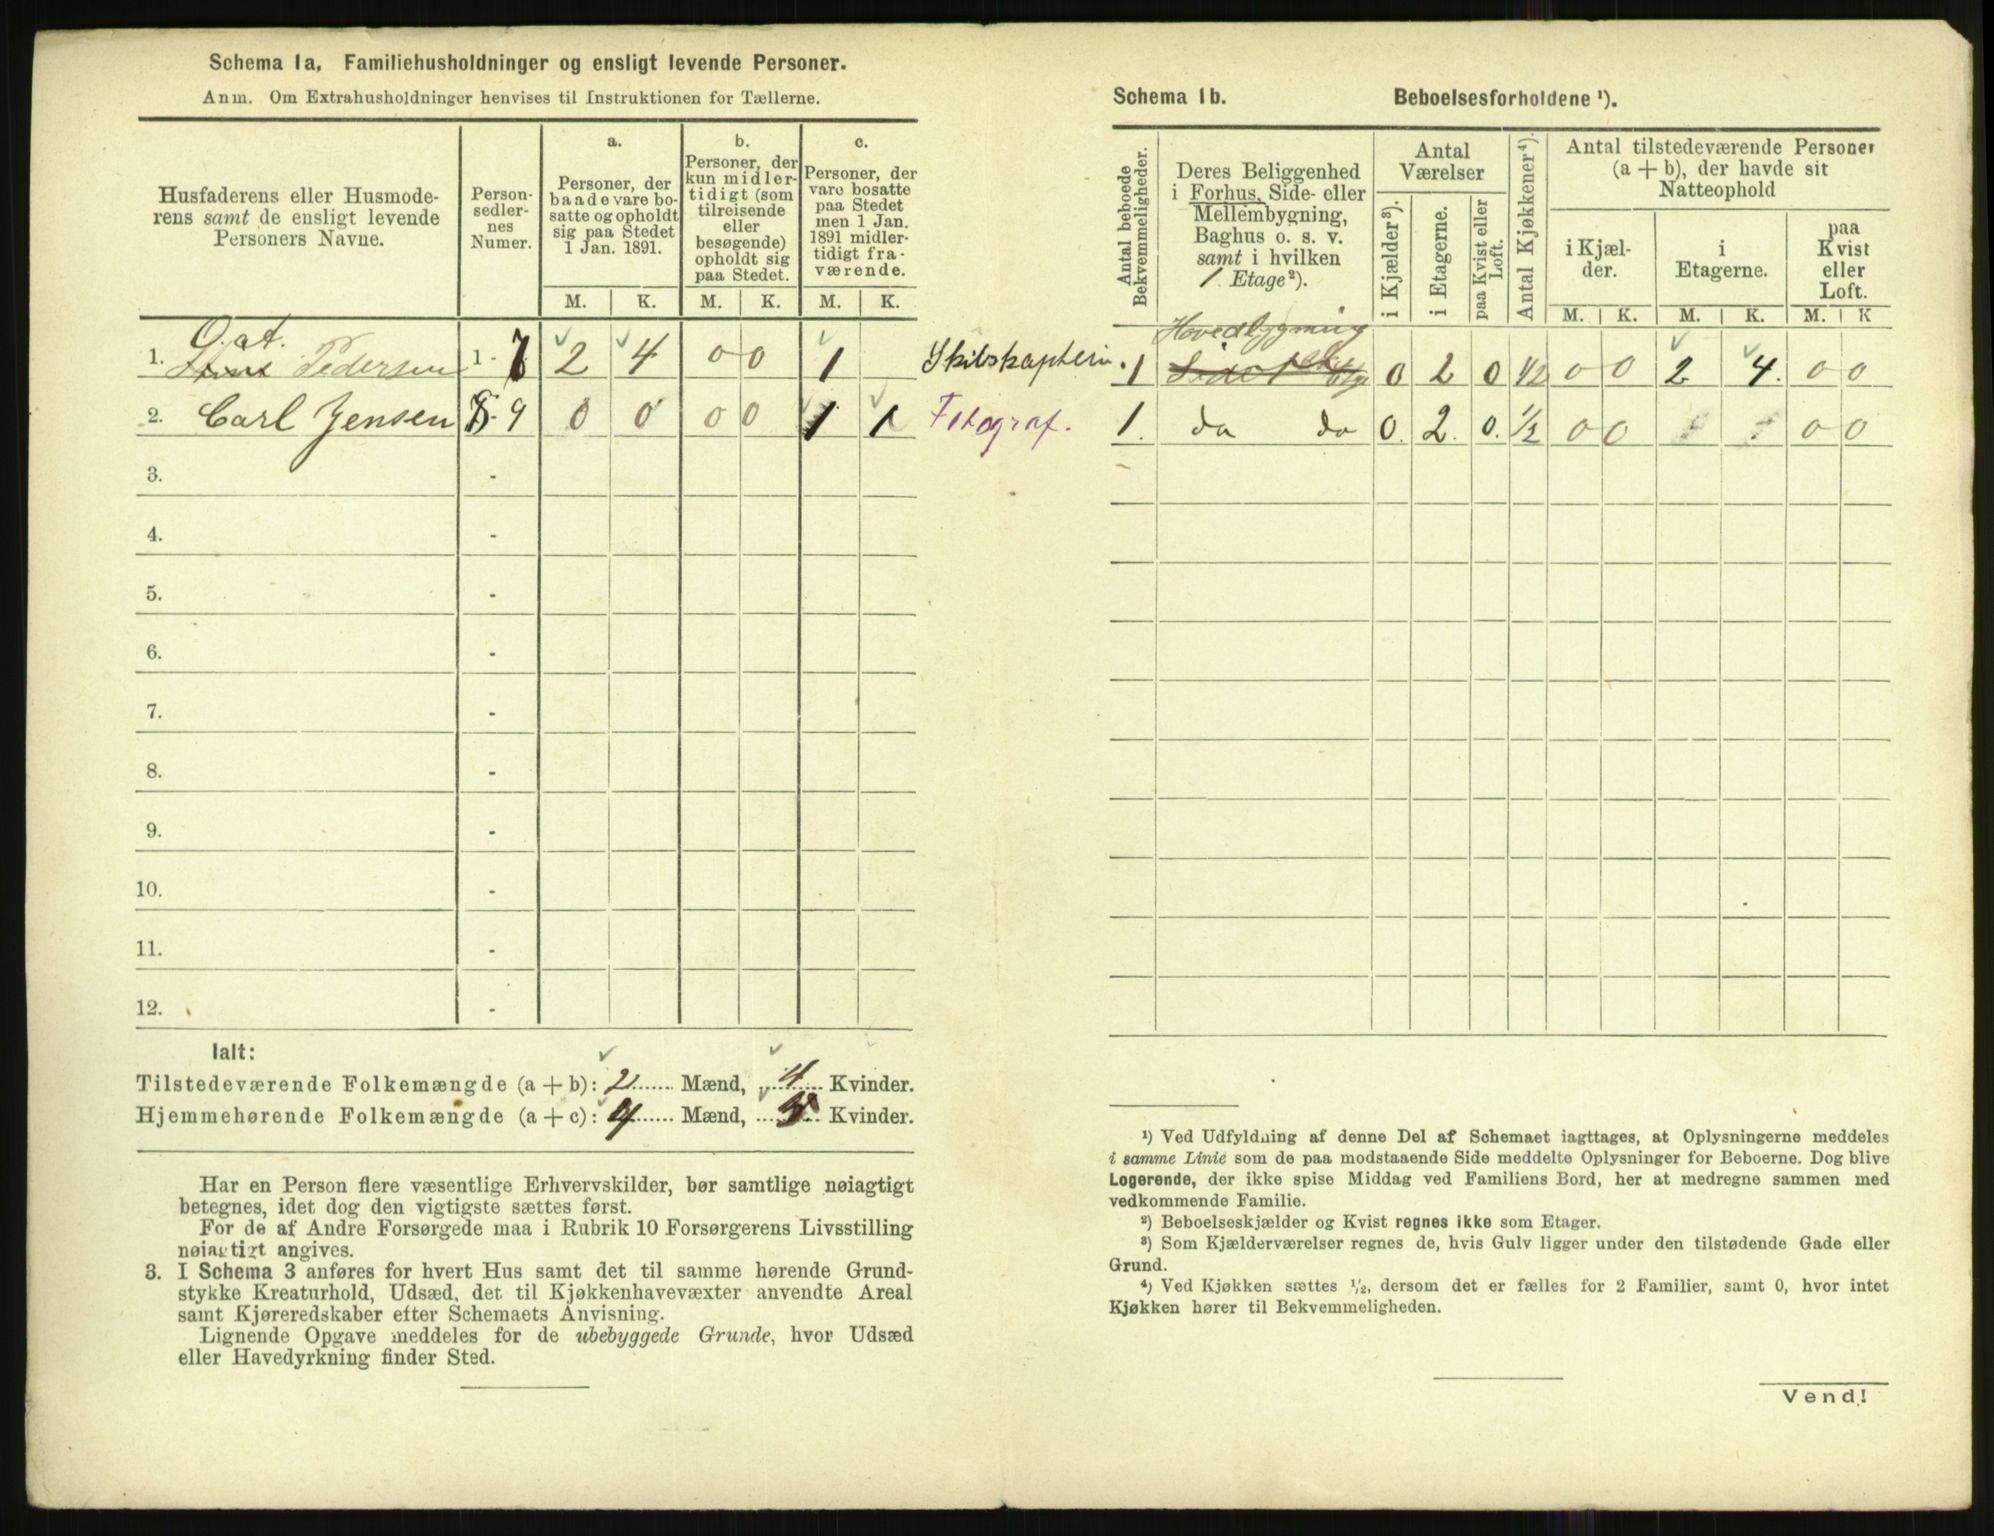 Schema 1a. Familiehusholdninger og ensligt levende Personer.
Anm. Om Extrahusholdninger henvises til Instruktionen for Tællerne.
Husfaderens eller Husmode-
rens samt de ensligt levende
Personers Navne.
Person-
sedler-
nes
Numer.
a.
Personer, der
baade vare bo-
satte og opholdt
sig paa Stedet
1 Jan. 1891.
b.
Personer, der
kun midler-
tidigt (som
tilreisende
eller
besøgende)
opholdt sig
paa Stedet.
c.
Personer, der
vare bosatte
paa Stedet
men 1 Jan.
1891 midler-
tidigt fra-
værende.
M. K. M. K. M. K.
1. Pedersen 1 - 7 2 4 0 0 1 Skibskaptein.
2. Carl Jensen 8 - 9 0 0 0 0 1 1 Fotograf.
3. -
4. -
5. -
6. -
7. -
8. -
9. -
10. -
11. -
12. -
Ialt:
Tilstedeværende Folkemængde (a + b): 2 Mænd, 4 Kvinder.
Hjemmehørende Folkemængde (a + c): 4 Mænd, 5 Kvinder.
Har en Person flere væsentlige Erhvervskilder, bør samtlige nøiagtigt
betegnes, idet dog den vigtigste sættes først.
For de af Andre Forsørgede maa i Rubrik 10 Forsørgerens Livsstilling
nøiagtigt angives.
3. I Schema 3 anføres for hvert Hus samt det til samme hørende Grund-
stykke Kreaturhold, Udsæd, det til Kjøkkenhavevæxter anvendte Areal
samt Kjøreredskaber efter Schemaets Anvisning.
Lignende Opgave meddeles for de ubebyggede Grunde, hvor Udsæd
eller Havedyrkning finder Sted.
Schema 1b. Beboelsesforholdene ¹).
Antal beboede
Bekvemmeligheder.
Deres Beliggenhed
i Forhus, Side- eller
Mellembygning,
Baghus o. s. v.
samt i hvilken
1. Etage²).
Antal
Værelser
i Kjælder³).
i Etagerne.
paa Kvist eller
Loft.
Antal Kjøkkener⁴).
Antal tilstedeværende Personer
(a + b), der havde sit
Natteophold
i Kjæl-
der.
i
Etagerne.
paa
Kvist
eller
Loft.
M. K. M. K. M. K
Hovedbygning
1 0 2 0 1/2 0 0 2 4. 0 0
1. do do 0. 2. 0. 1/2 0 0 0 0
¹) Ved Udfyldning af denne Del af Schemaet iagttages, at Oplysningerne meddeles
i samme Linie som de paa modstaaende Side meddelte Oplysninger for Beboerne. Dog blive
Logerende, der ikke spise Middag ved Familiens Bord, her at medregne sammen med
vedkommende Familie.
²) Beboelseskjælder og Kvist regnes ikke som Etager.
³) Som Kjælderværelser regnes de, hvis Gulv ligger under den tilstødende Gade eller
Grund.
⁴) Ved Kjøkken sættes ½, dersom det er fælles for 2 Familier, samt 0, hvor intet
Kjøkken hører til Bekvemmeligheden.
Vend!